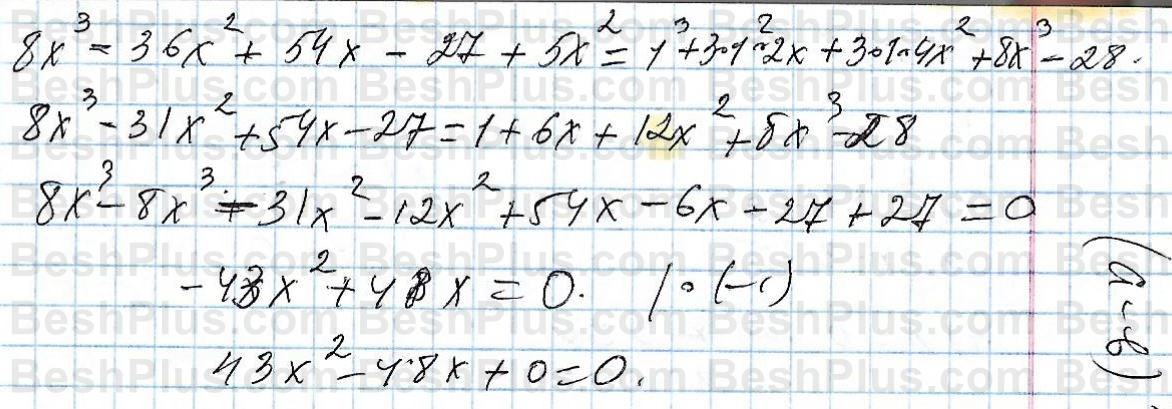 8x³ - 36x² + 54x - 27 + 5x² = 1³ + 3·1²·2x + 3·1·4x² + 8x³ - 28.
8x³ - 31x² + 54x - 27 = 1 + 6x + 12x² + 8x³ - 28
8x³ - 8x³ - 31x² - 12x² + 54x - 6x - 27 + 27 = 0
-43x² + 48x = 0. | · (-1)
43x² - 48x + 0 = 0.
(a-b)
BeshPlus.com